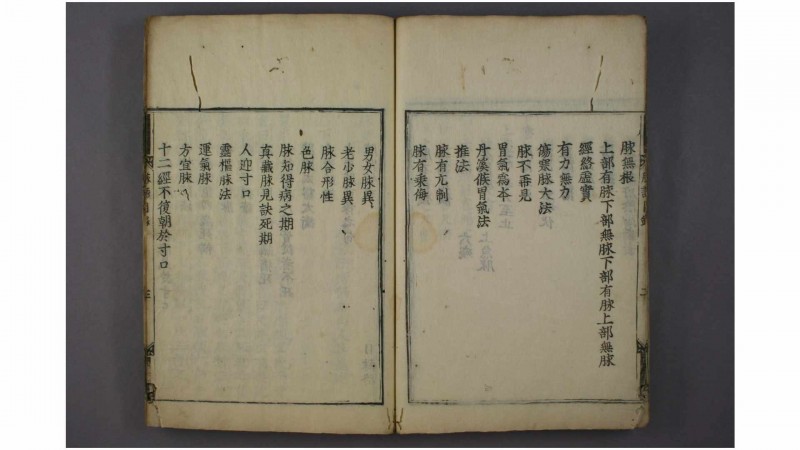 脉無根
上部有脉下部無脉下部有脉上部無脉
經絡虛實
有力無力
傷寒脉大法
脉不再見
胃氣爲本
丹溪候胃氣法
推法
脉有亢制
脉有乗侮
男女脉異
老少脉異
脉合形性
色脉
脉知得病之期
真藏脉見訣死期
人迎寸口
靈樞脉法
運氣脉
方宜脉
十二經不復朝於寸口